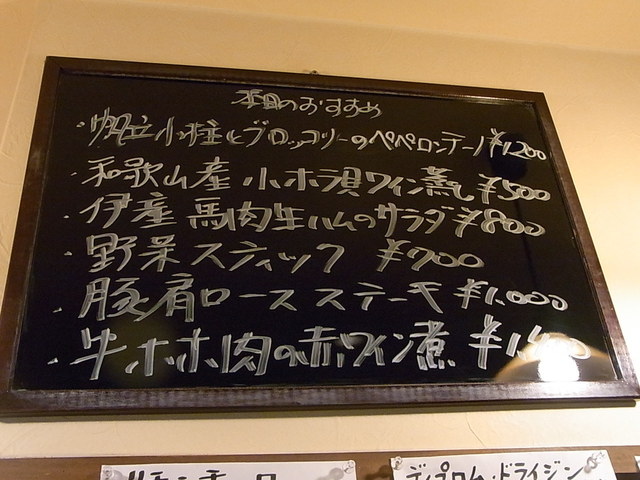 本日のおすすめ
・帆立小柱とブロッコリーのペペロンチーノ ¥1200
・和歌山産 小ホラ貝ワイン蒸し ¥500
・伊産 馬肉生ハムのサラダ ¥800
・野菜スティック ¥700
・豚肩ロース ステーキ ¥1.000
・牛ホホ肉の赤ワイン煮
ディプロム・ドライジン